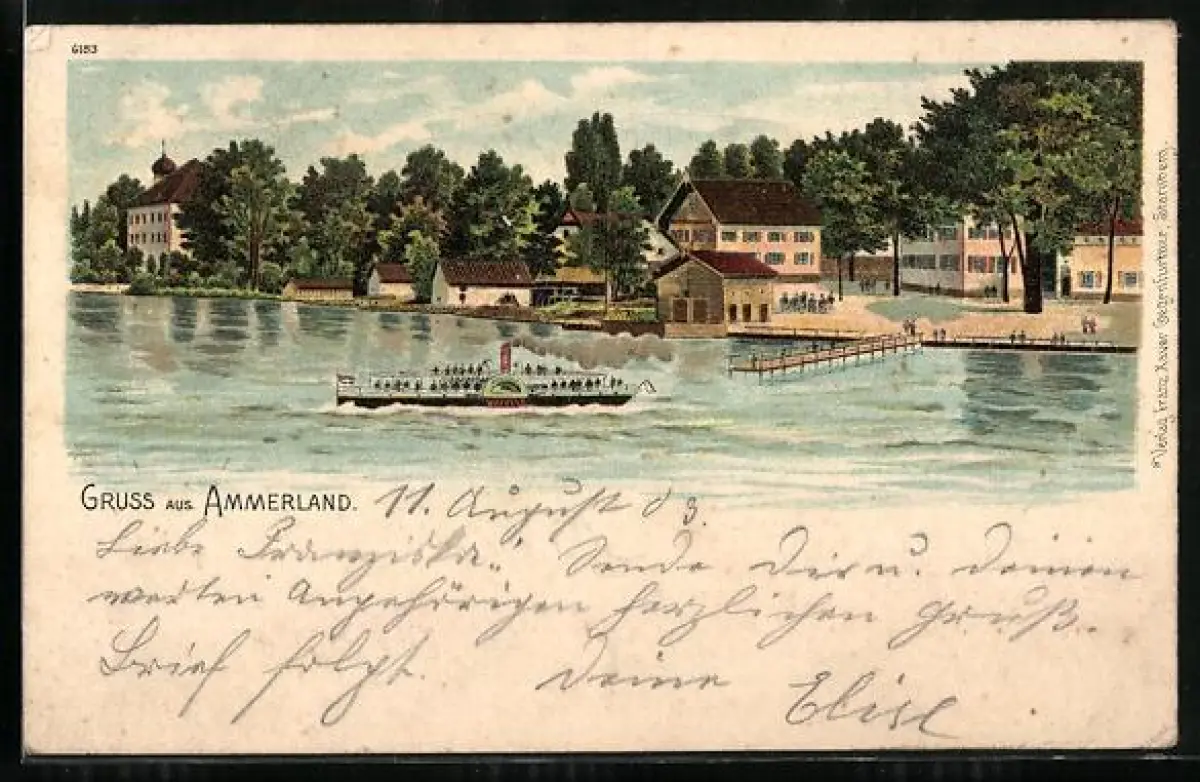 6183
GRUSS AUS AMMERLAND. 11. August 03.
Liebe Franziska! Sende Dir u. deinen
werten Angehörigen herzlichen Gruß.
Brief folgt. Deine Elise
Verlag Franz Xaver Starnberg.